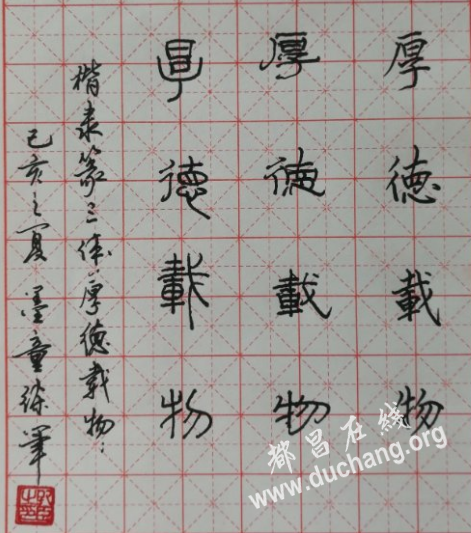 厚德載物
厚德載物
厚德載物
楷隶篆三体：厚德載物：
己亥之夏 墨童练笔
都昌在线
www.duchang.org